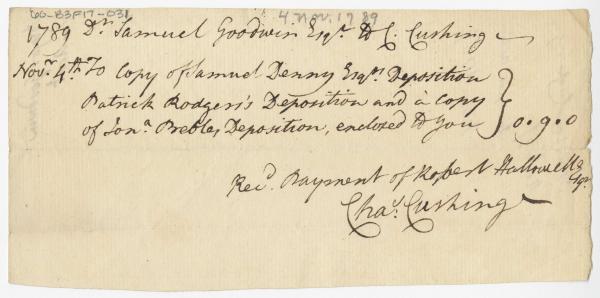 66-B3F17-031
4 Nov. 1789
1789 Dr. Samuel Goodwin Esqr. To C. Cushing
Novr. 4th To Copy of Samuel Denny Esqrs. Deposition
Patrick Rodgers's Deposition and a Copy
of Jona. Prebles Deposition, enclosed to you } 0.9.0
Recd. Payment of Robert Hallowell Esqr.
Chas. Cushing